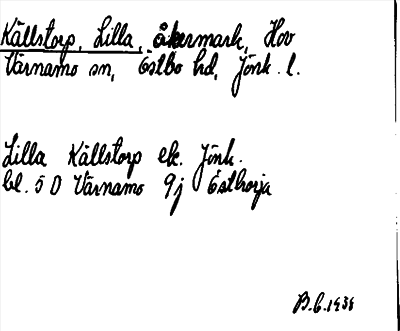 Källstorp, Lilla, åkermark, Hov
Värnamo sn, Östbo hd, Jönk. l.
Lilla Källstorp ek. Jönk.
bl. 5D Värnamo 9j Östhorja
B.C. 1938